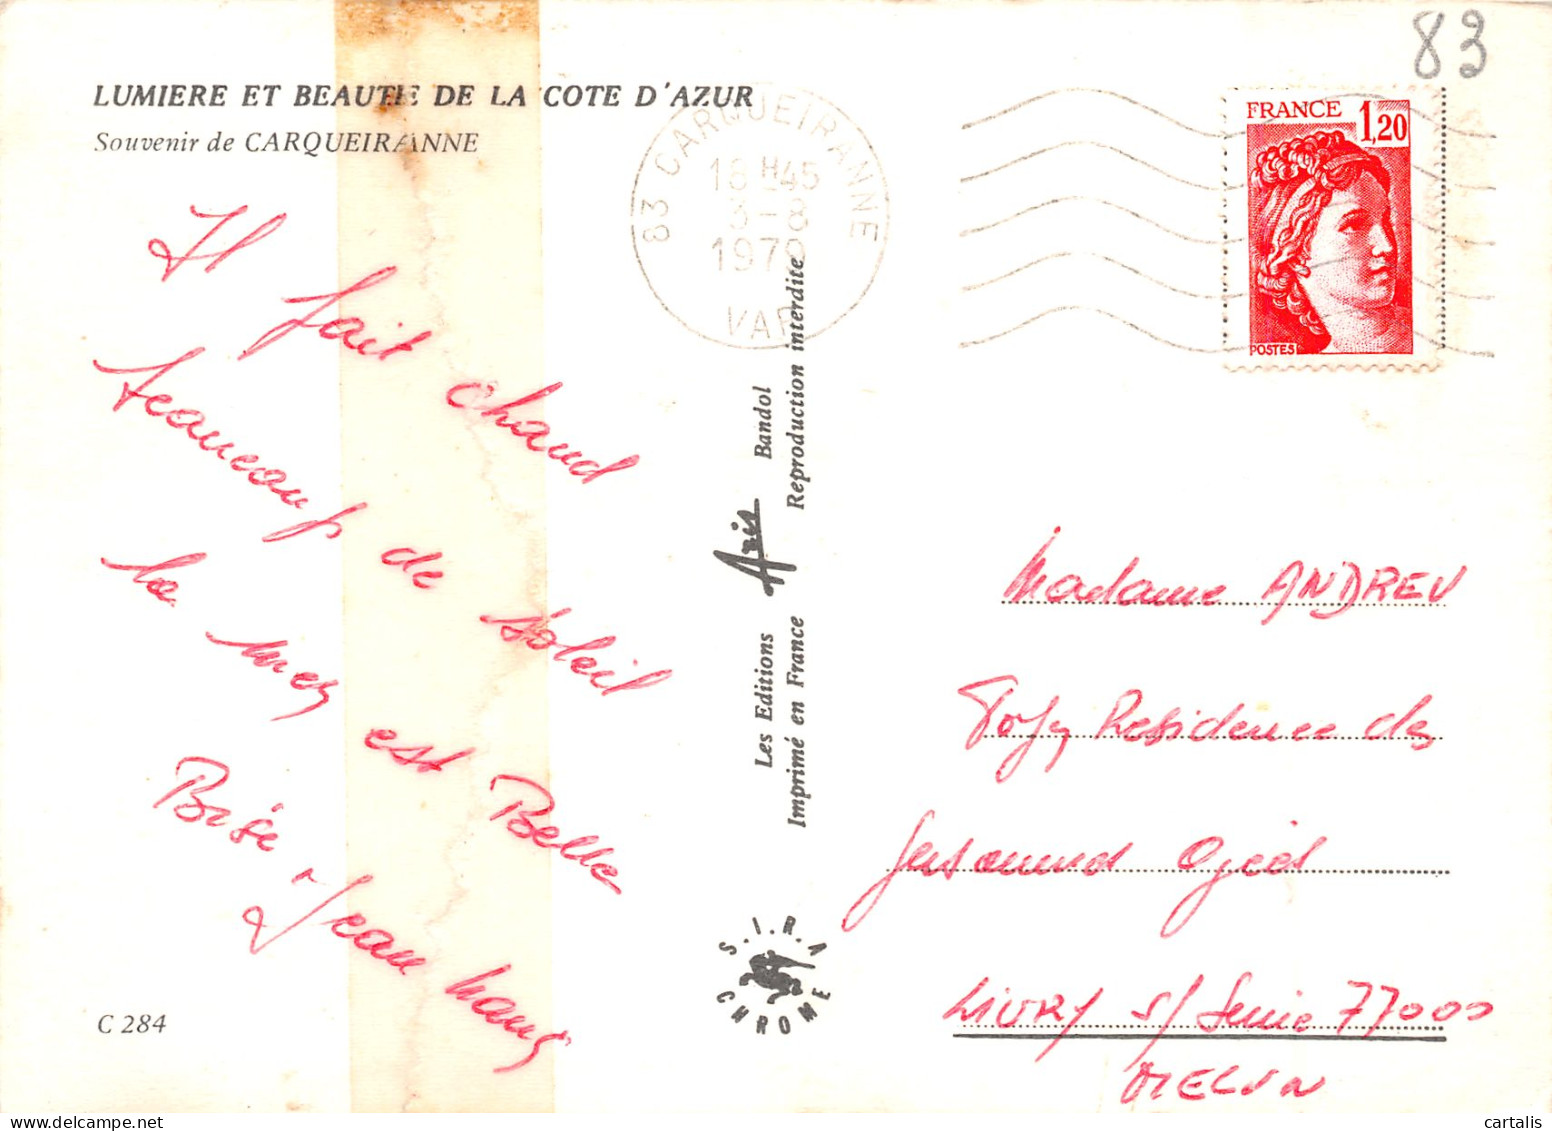 83
LUMIERE ET BEAUTE DE LA COTE D'AZUR
Souvenir de CARQUEIRANNE
83 CARQUEIRANNE
18 H45
3-8
1979
VAR
FRANCE 1,20
POSTES
Il fait chaud
beaucoup de soleil
la mer est Belle
Bisé
Jean
Les Editions Aris Bandol
Imprimé en France Reproduction interdite
S.I.R.A
CHROME
C 284
Madame ANDREU
Residence des
LIVRY s/ Seine 77000
MELUN